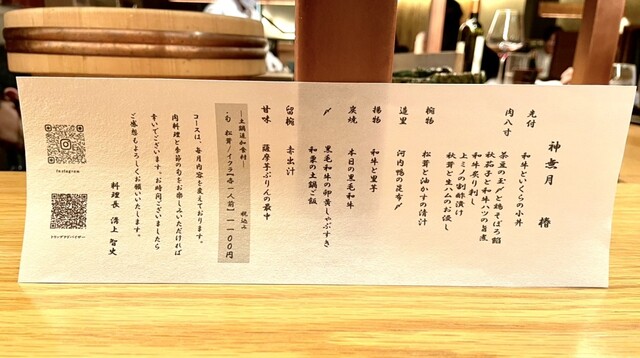 神無月　椿
先付　和牛といくらの小丼
肉八寸
茶豆の玉〆と鶏そぼろ餡
秋茄子と和牛ハツの旨煮
和牛炙り刺し
上ミノの割酢漬け
秋茸と生ハムのお浸し
椀物　松茸と油かすの清汁
造里　河内鴨の昆布〆
揚物　和牛と里芋
炭焼　本日の黒毛和牛
〆　黒毛和牛の卵黄しゃぶすき
和栗の土鍋ご飯
留椀　赤出汁
甘味　薩摩芋ぷりんの最中
―土鍋追加食材―
・旬　松茸/イクラ【一名一人前】一一〇〇円
税込み
コースは、毎月内容を変えております。
肉料理と季節の旬をお楽しみいただければ
幸いでございます。お時間ございましたら
ご感想もよろしくお願いいたします。
料理長　溝上　智史
Instagram
トリップアドバイザー